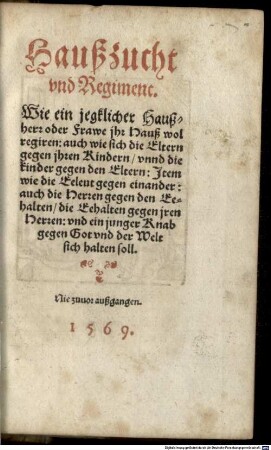 Haußzucht
vnd Regiment.
Wie ein jegklicher Hauß-
herr oder Frawe jhr Hauß wol
regiren: auch wie sich die Eltern
gegen jhren Kindern / vnnd die
kinder gegen den Eltern: Item
wie die Eeleut gegen einander:
auch die Herren gegen den Ee-
halten / die Eehalten gegen jren
Herren: vnd ein junger Knab
gegen Got vnd der Welt
sich halten soll.
Nie zuuor außgangen.
1569.